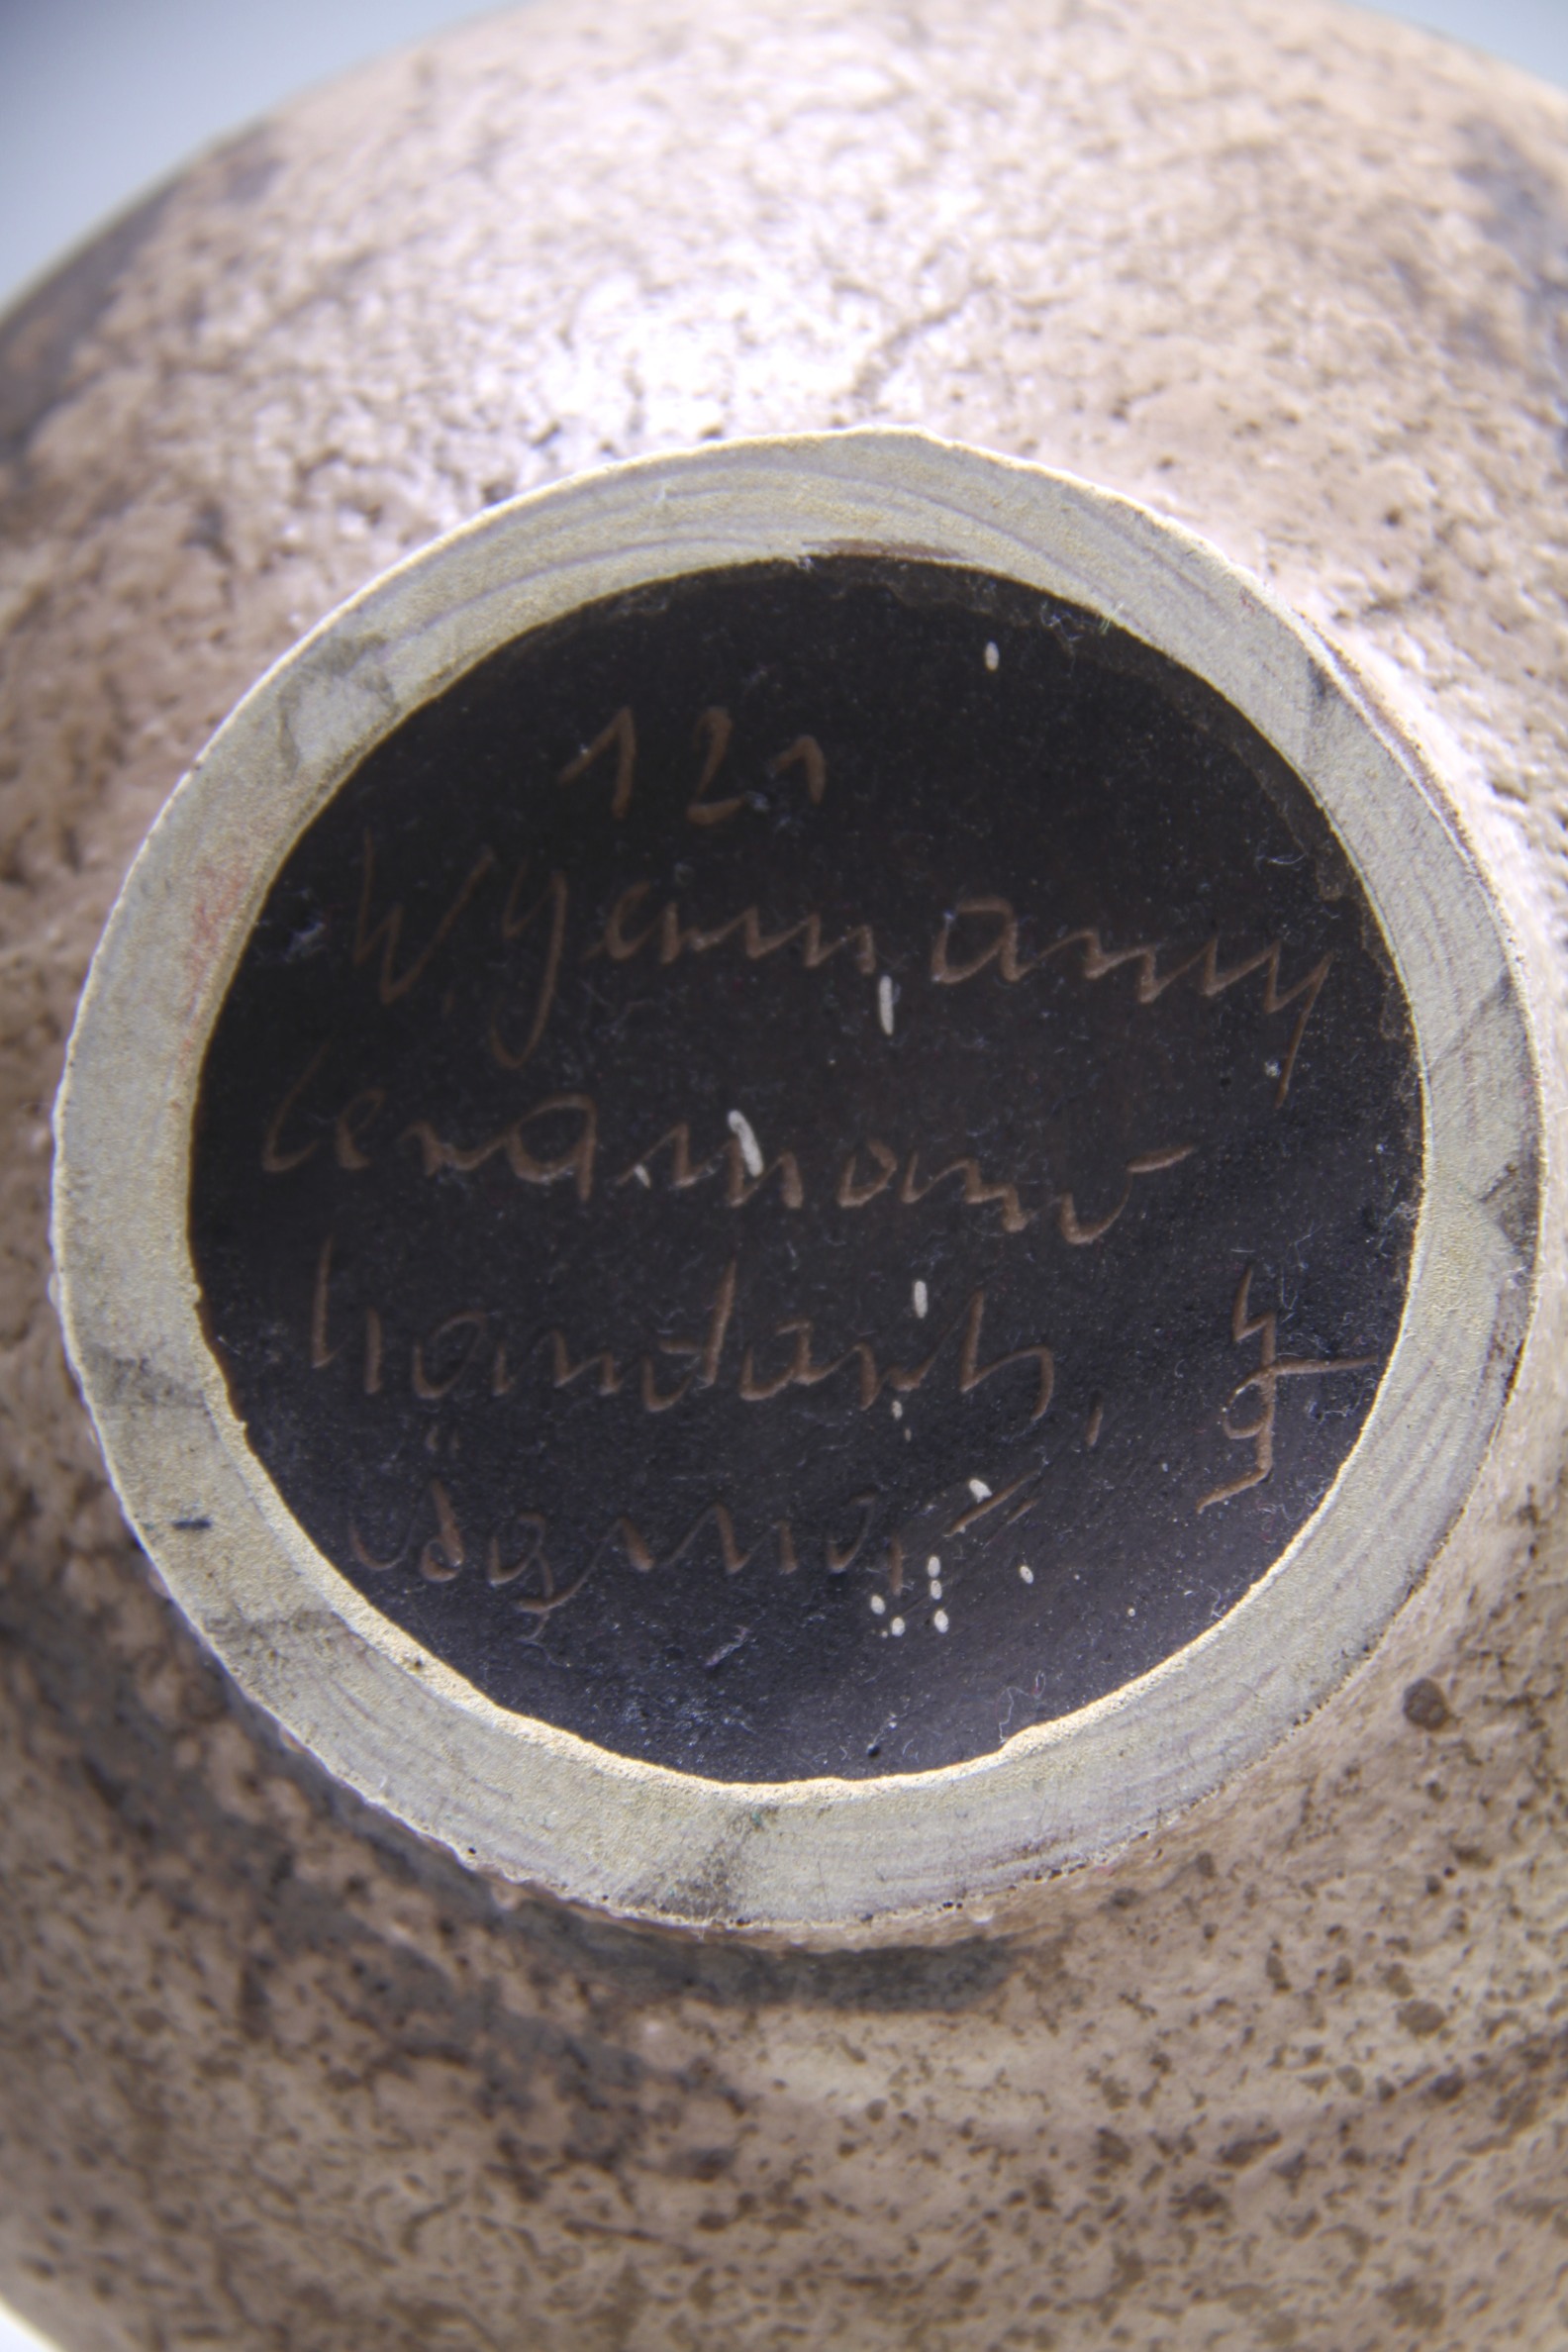 121
W.germany
Ceramano-
handarb,